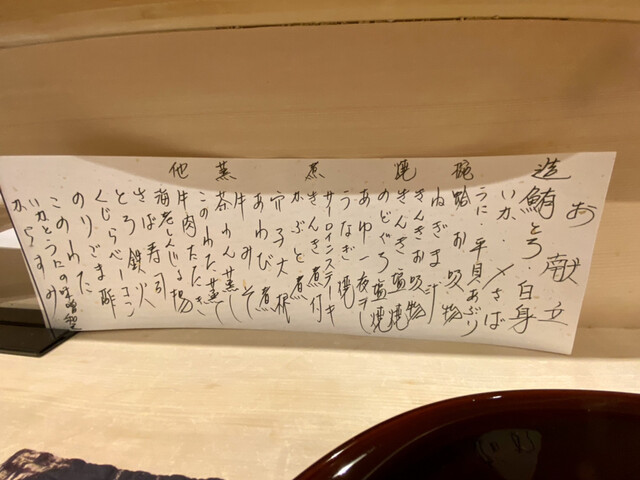 お献立
造 鮪とろ・白身
いか・〆さば
うに・平貝あぶり
椀 蛤お吸物
ねぎま汁
きんきお吸物
焼 きんき塩焼
のどぐろ塩焼
あゆ一夜干し
うなぎ焼
サーロインステーキ
煮 きんき煮付
かぶと煮
穴子大根
あわび煮
牛みそ
蒸 茶わん蒸し
このわた蒸し
牛肉たたき
他 海老しんじょう揚
さば寿司
とろ鉄火
くじらベーコン
のり・ごま酢
このわた
いかとうにの味噌
からすみ